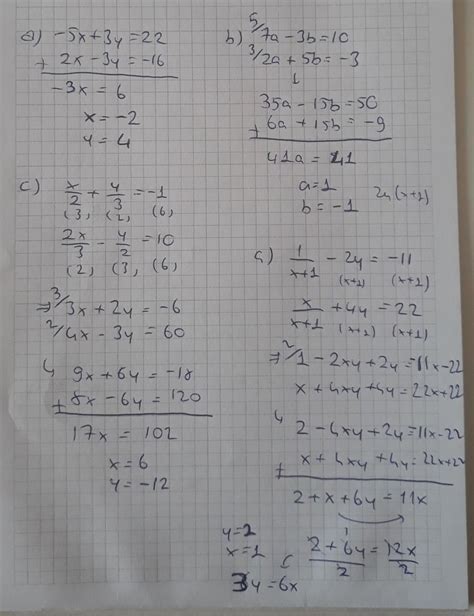 a) -5x+3y=22
+ 2x-3y=-16
-3x = 6
x=-2
y=4
b) 5/7a-3b=10
3/2a+5b=-3
↓
35a-15b=50
+ 6a+15b=-9
41a = 41
a=1
b=-1
c) x/2 + y/3 = -1
(3, (2, (6)
2x/3 - y/2 = 10
(2) (3, (6)
⇒ 3/3x+2y=-6
2/4x-3y=60
↳ 9x+6y=-18
+ 8x-6y=120
17x=102
x=6
y=-12
2y(x+1)
d) 1/x+1 - 2y = -11
(x+1) (x+1)
x/x+1 + 4y = 22
(x+1) (x+1)
⇒ 2/1-2xy+2y=11x-22
x+4xy+4y=22x+22
↳ 2-4xy+2y=11x-22
+ x+4xy+4y=22x+22
2+x+6y=11x
2+6y/2=12x/2
3y=6x
y=2
x=1